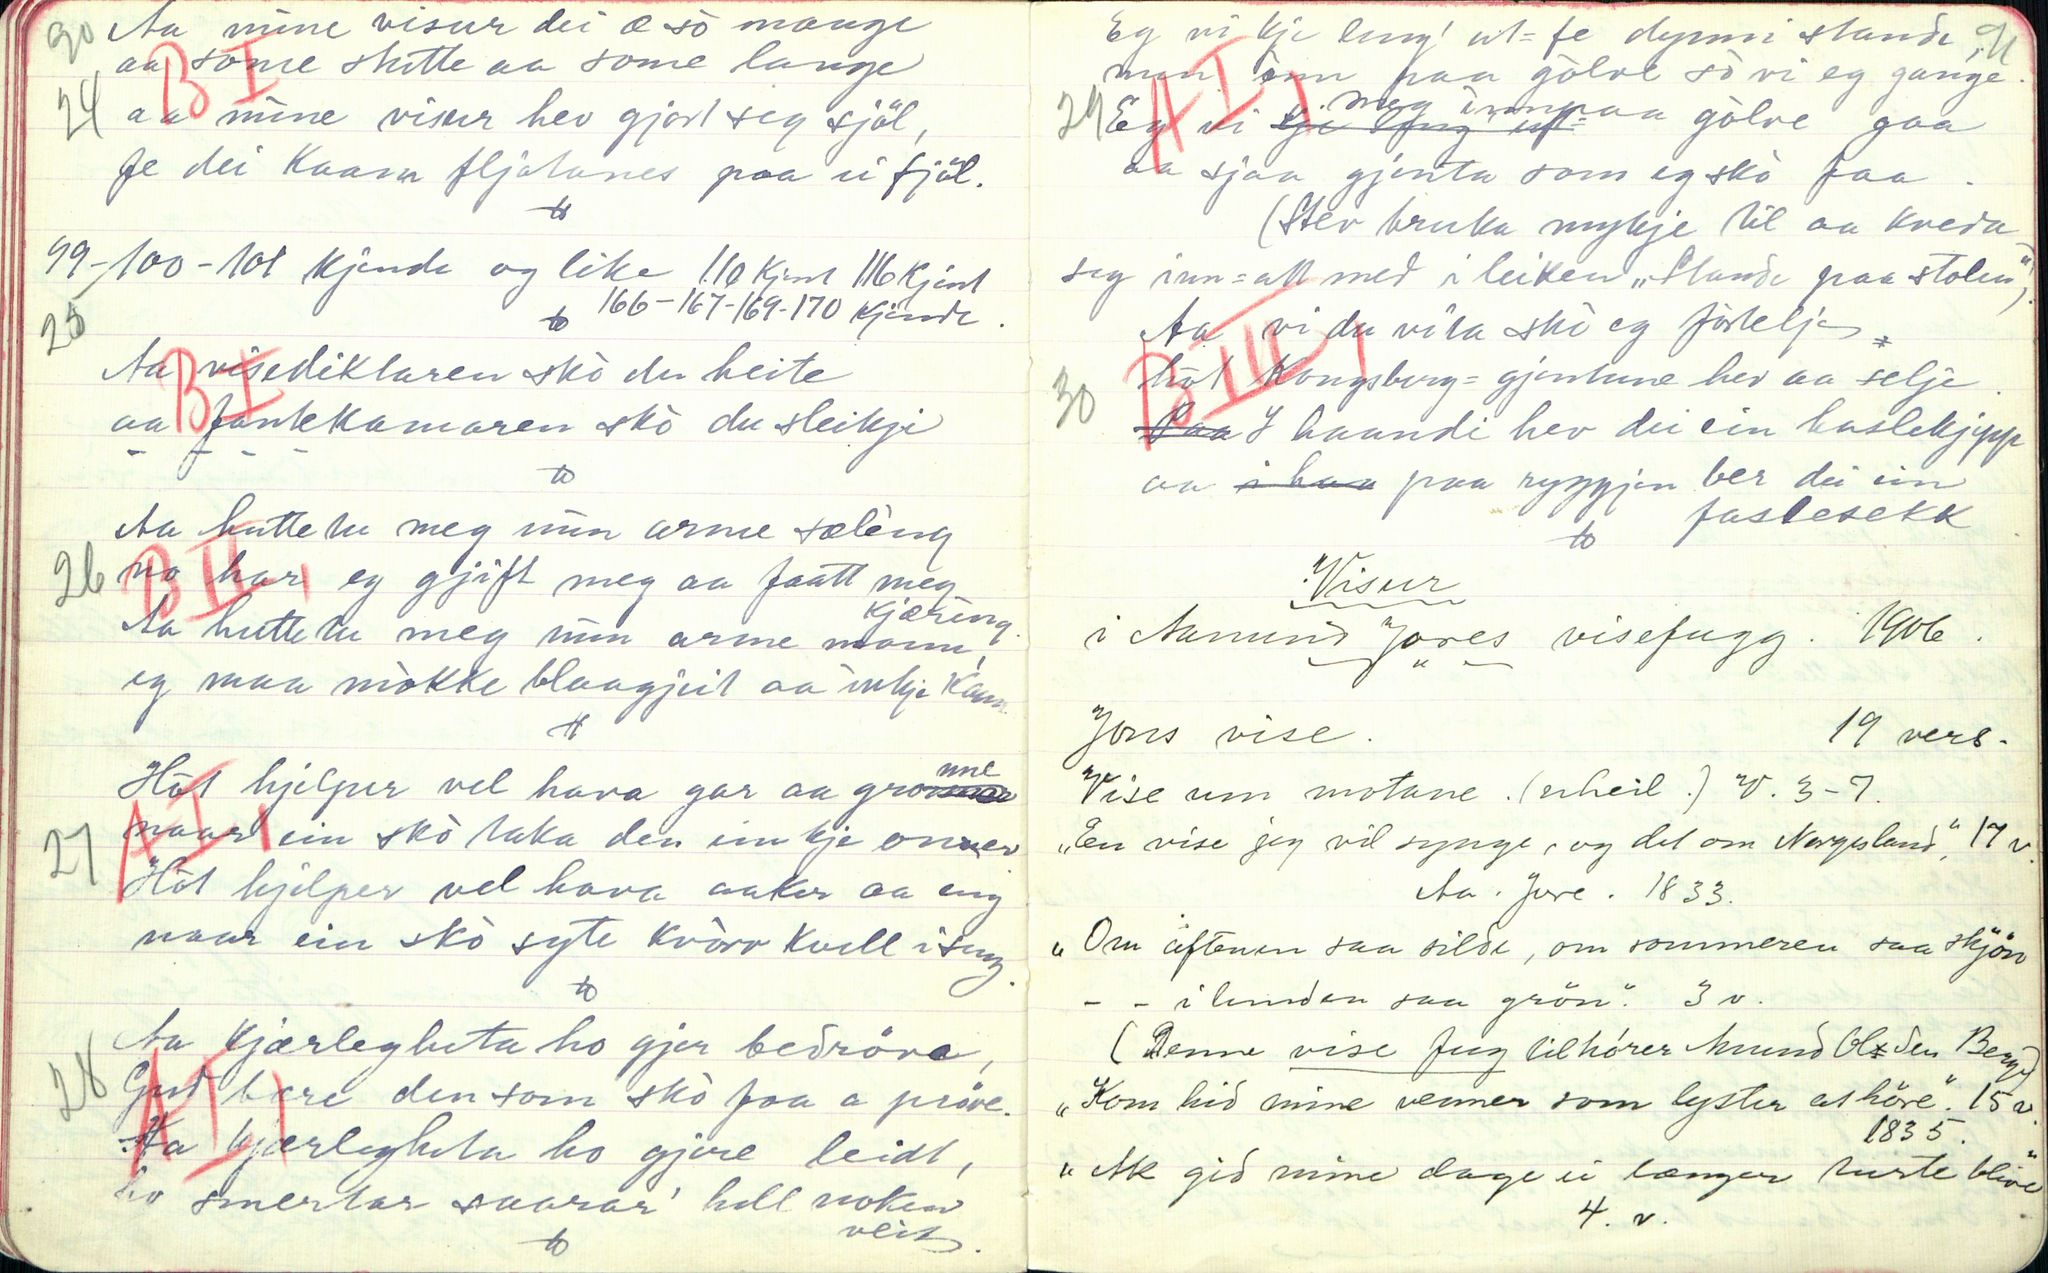 90
Aa mine visur dei æ so mange
aa some stutte aa some lange
B I
24
aa mine visur hev gjort seg sjöl,
fe dei kaam fljotanes paa ei fjöl.
99-100-101 kjende og like 110 kjent 116 kjent
166-167-169-170 kjende.
25
Aa visediktaren skò du heite
B I
aa fantekamaren skò du sleikje
- - - -
Aa huttetu meg min arme sælèng
26
no har eg gjift meg aa faatt meg
kjæring.
B II,
Aa huttetu meg min arme mann,
eg maa mòkke blaagjeit aa inkje kann
Hòt hjelper vel hava gar aa grònne
A I,
27
naar ein skò taka den ein kje onner
Hòt hjelper vel hava aaker aa eng
naar ein skò syte kvòrv kvell i seng.
Aa kjærlegheta ho gjer bedröva,
28
Gud bære den som skò faa a pröve.
A I,
Aa kjærlegheta ho gjere leidt,
ho smertar saarar' hell noken
veit.
91
Eg vi kje leng' ut=fe dynni stande,
men inn paa gòlve sò vi eg gange.
A I,
29
Eg vi kje leng' ut= meg innpaa gòlve gaa
aa sjaa gjenta som eg skò faa.
(Stev bruka mykje til aa kveda
seg inn=att med i leiken "Stande paa stolen").
Aa vi du vita skò eg förtelje
B III,
30
hòt Kongsberg=gjentune hev aa selje.
Paa I haandi hev dei ein haslekjepp
aa i haa paa ryggjen ber dei ein
fastesekk
Visur
i Aamund Jores visefugg. 1906.
Jons vise. 19 vers.
Vise um motane. (uheil.) V. 3-7.
"En vise jeg vil synge, og det om Norgesland", 17 v.
Aa. Jore. 1833.
"Om aftenen saa silde, om sommeren saa skjön
- - i lunden saa grön". 3 v.
(Denne vise fug tilhörer Amund Olsden Berge)
"Kom hid mine venner som lyster at höre". 15 v.
1835.
"Ak gid mine dage ei længer turte blive"
4. v.